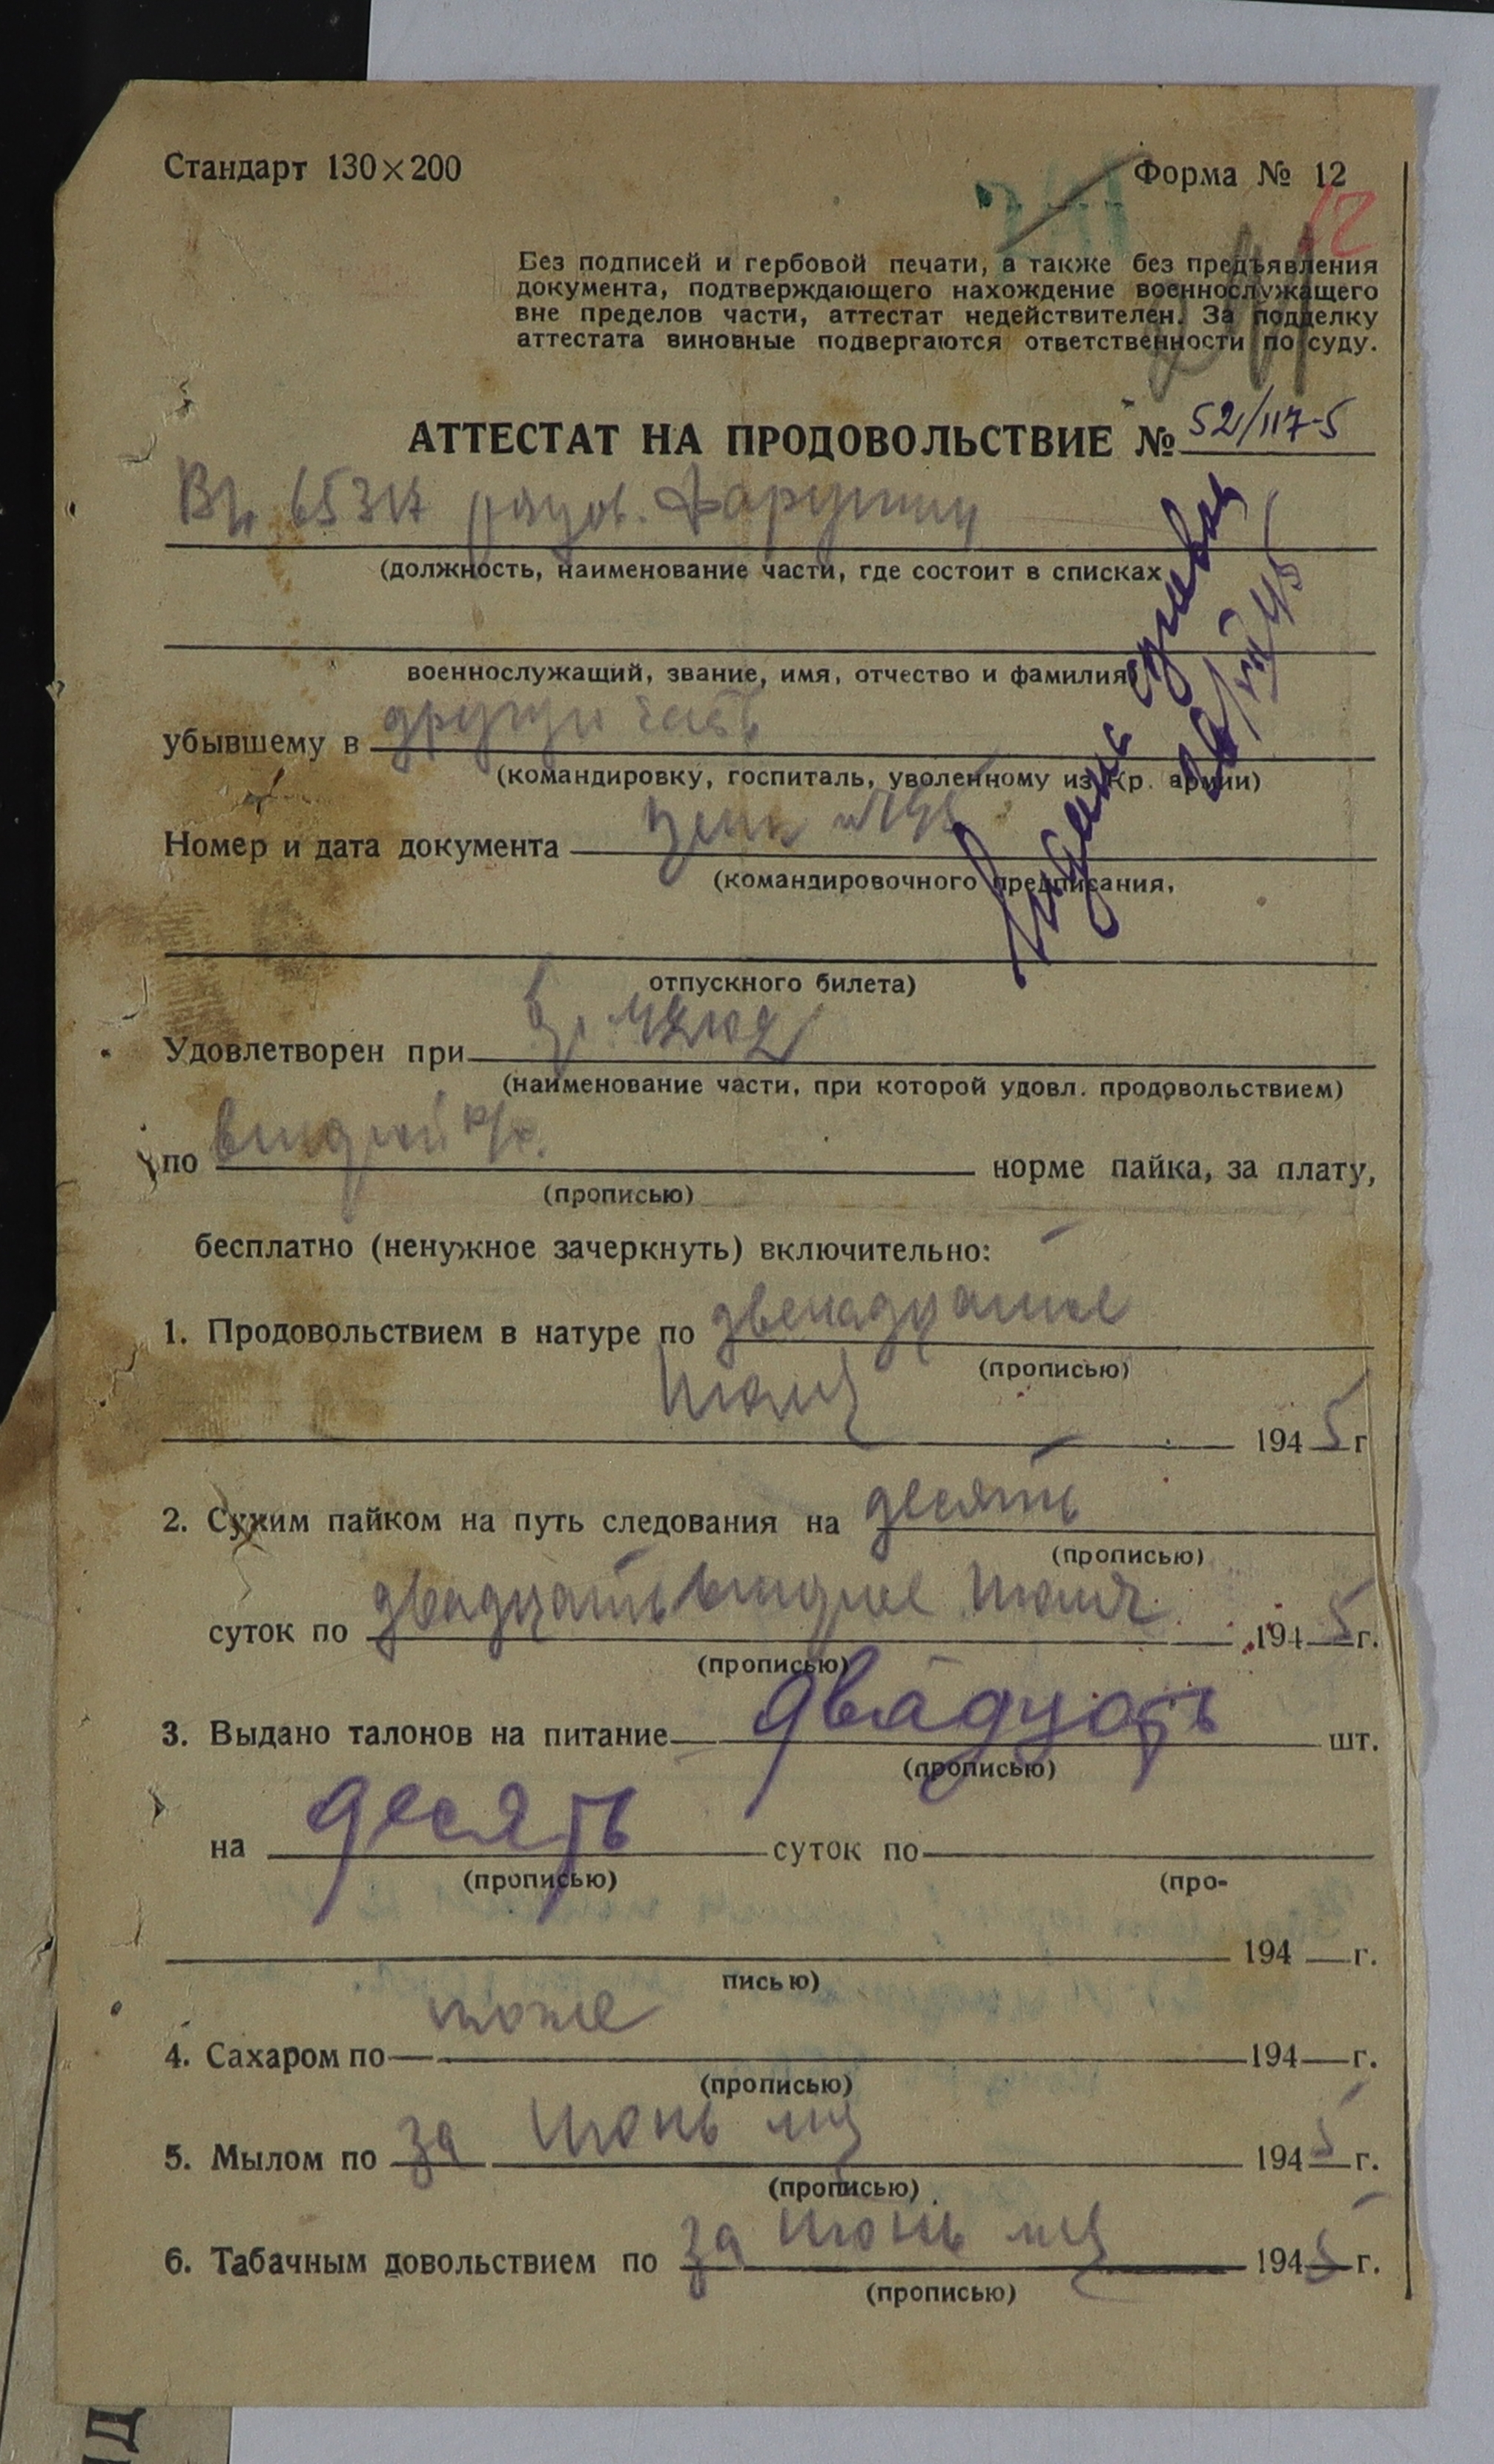 Стандарт 130×200
Форма № 12
12
241
Без подписей и гербовой печати, а также без предъявления
документа, подтверждающего нахождение военнослужащего
вне пределов части, аттестат недействителен. За подделку
аттестата виновные подвергаются ответственности по суду.
АТТЕСТАТ НА ПРОДОВОЛЬСТВИЕ № 52/117-5
(должность, наименование части, где состоит в списках
военнослужащий, звание, имя, отчество и фамилия)
убывшему в другую часть
(командировку, госпиталь, уволенному из Кр. армии)
Номер и дата документа
(командировочного предписания,
отпускного билета)
Удовлетворен при
(наименование части, при которой удовл. продовольствием)
по второй норме пайка, за плату,
(прописью)
бесплатно (ненужное зачеркнуть) включительно:
1. Продовольствием в натуре по двенадцатое
(прописью)
Июля 1945 г
2. Сухим пайком на путь следования на десять
(прописью)
суток по двадцать второе Июля 1945 г.
(прописью)
3. Выдано талонов на питание двадцать шт.
(прописью)
на десять суток по
(прописью) (про-
194 г.
писью)
4. Сахаром по тоже 194 г.
(прописью)
5. Мылом по за Июнь м-ц 1945 г.
(прописью)
6. Табачным довольствием по за Июнь м-ц 1945 г.
(прописью)